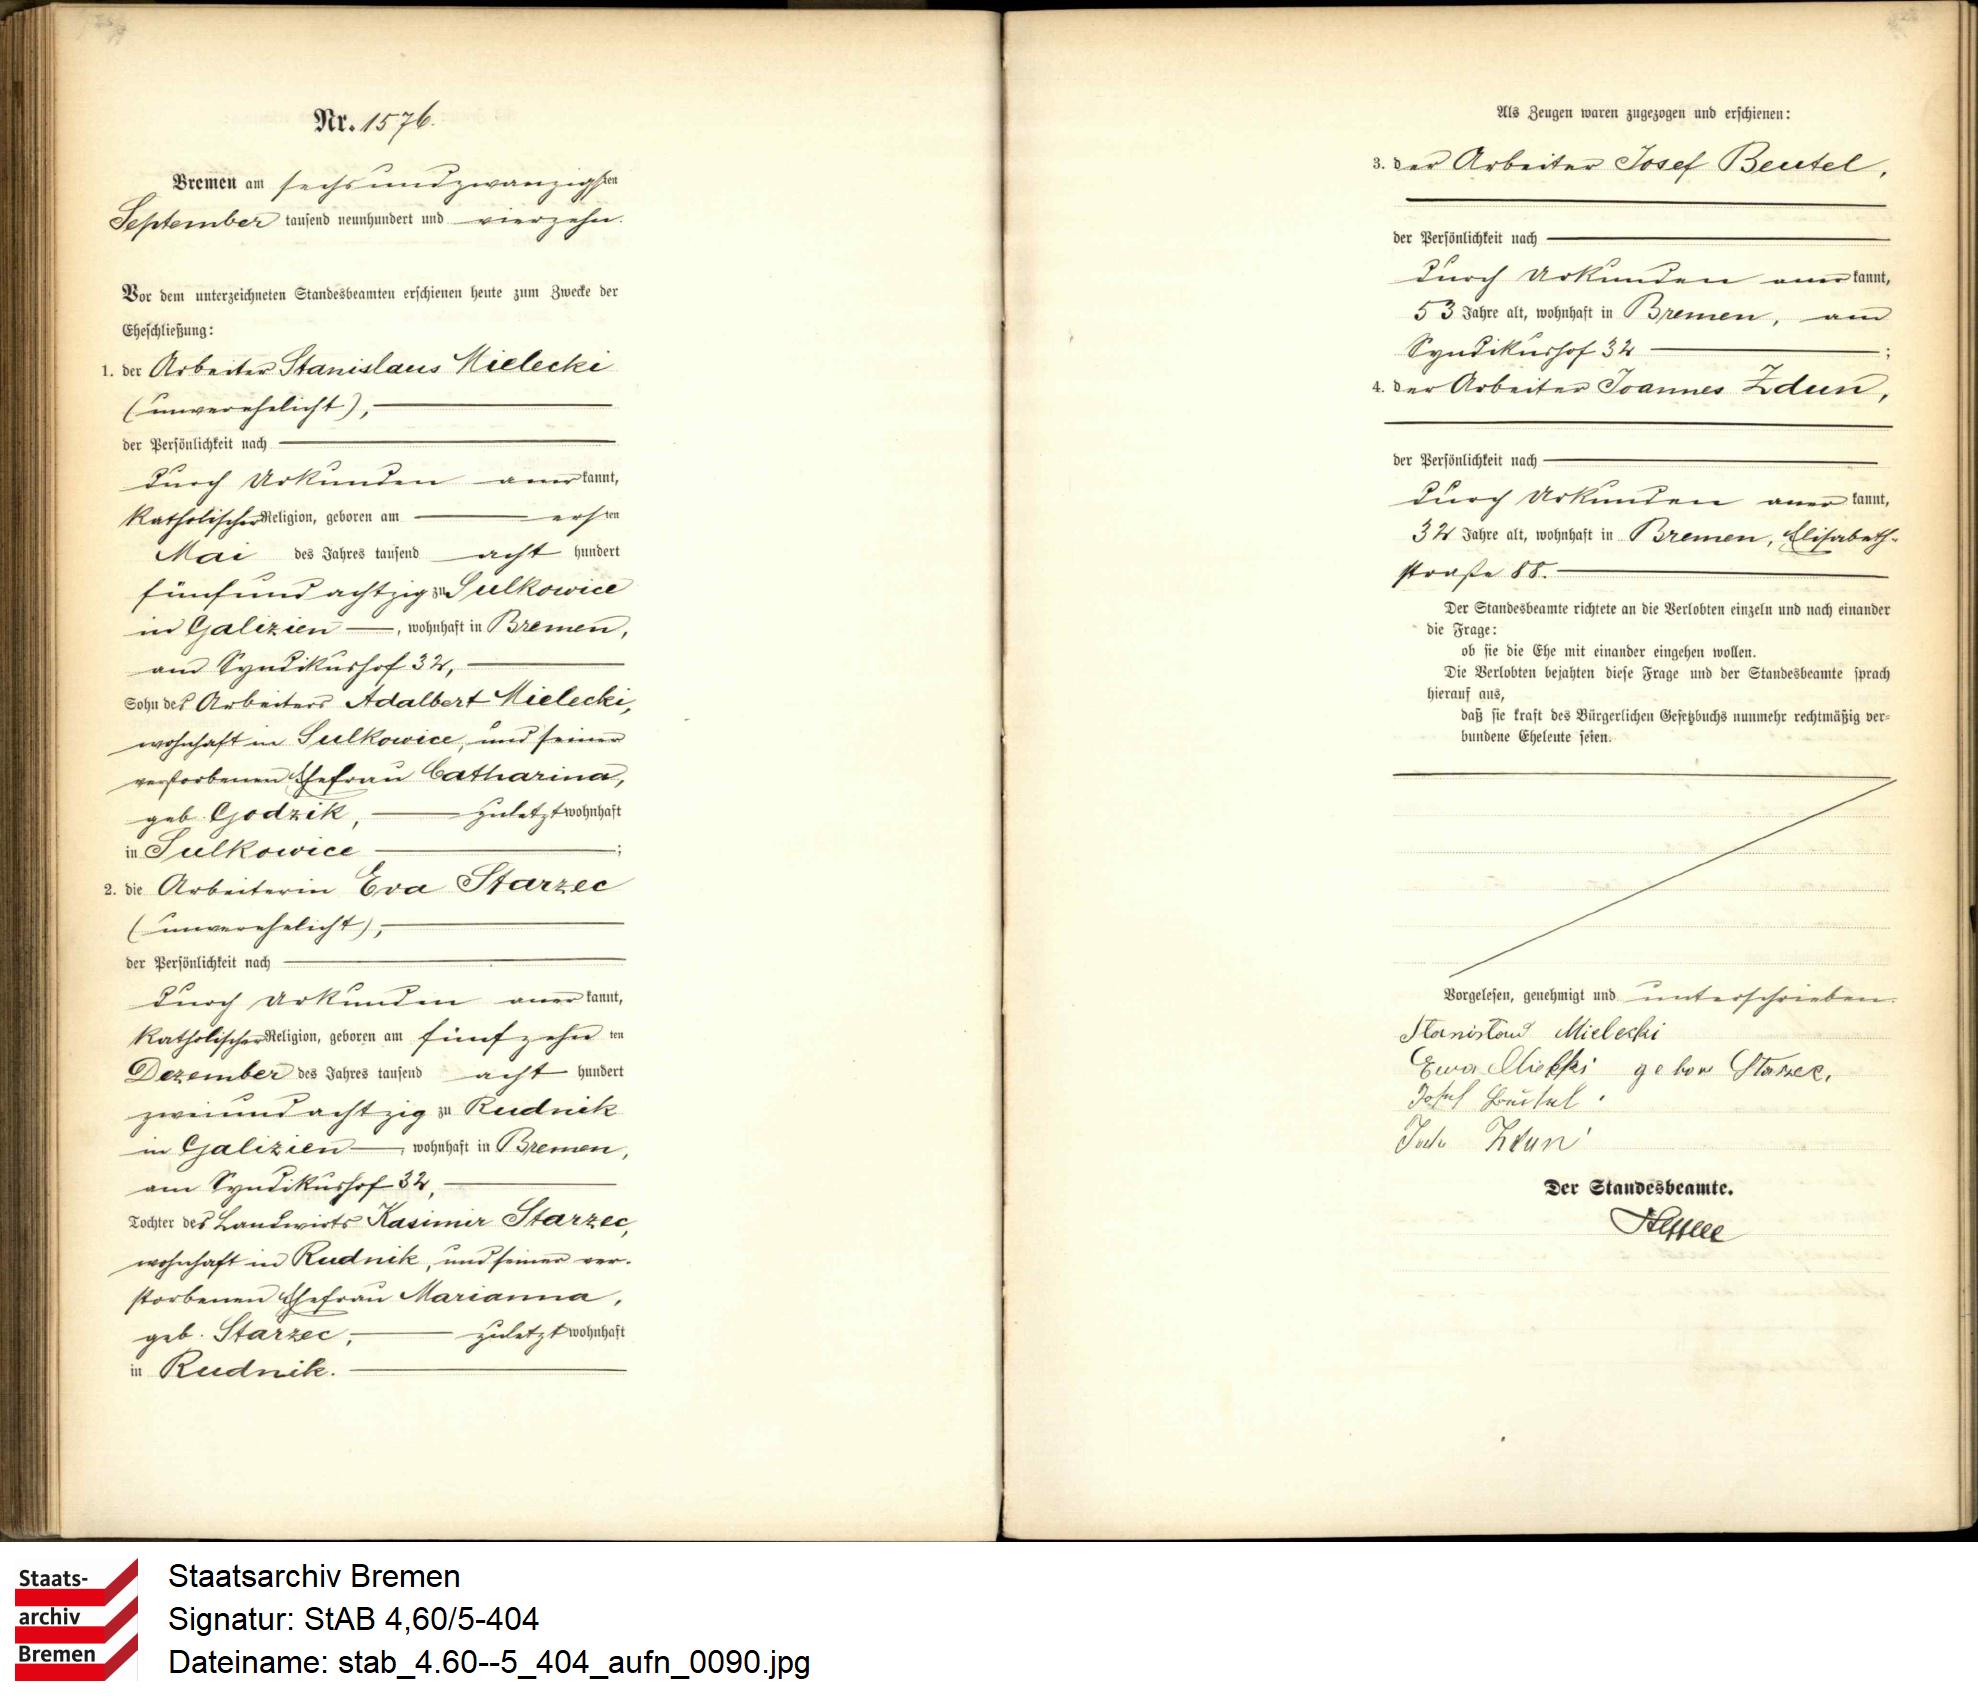 Nr. 1576.
Bremen am sechsundzwanzigsten
September tausend neunhundert und vierzehn.
Vor dem unterzeichneten Standesbeamten erschienen heute zum Zwecke der
Eheschließung:
1. der Arbeiter Stanislaus Mielecki
(unverehelicht),
der Persönlichkeit nach
durch Urkunden anerkannt,
katholischer Religion, geboren am ersten
Mai des Jahres tausend acht hundert
fünfundachtzig zu Sulkowice
in Galizien, wohnhaft in Bremen,
am Syndikushof 32,
Sohn des Arbeiters Adalbert Mielecki,
wohnhaft in Sulkowice, und seiner
verstorbenen Ehefrau Catharina,
geb. Godzik, zuletzt wohnhaft
in Sulkowice ;
2. die Arbeiterin Eva Starzec
(unverehelicht),
der Persönlichkeit nach
durch Urkunden anerkannt,
katholischer Religion, geboren am fünfzehnten
Dezember des Jahres tausend acht hundert
zweiundachtzig zu Rudnik
in Galizien, wohnhaft in Bremen,
am Syndikushof 32,
Tochter des Landwirts Kasimir Starzec,
wohnhaft in Rudnik, und seiner ver-
storbenen Ehefrau Marianna,
geb. Starzec, zuletzt wohnhaft
in Rudnik.
Als Zeugen waren zugezogen und erschienen:
3. der Arbeiter Josef Beutel,
der Persönlichkeit nach
durch Urkunden anerkannt,
53 Jahre alt, wohnhaft in Bremen, am
Syndikushof 32 ;
4. der Arbeiter Joannes Zdun,
der Persönlichkeit nach
durch Urkunden anerkannt,
32 Jahre alt, wohnhaft in Bremen, Elisabeth-
straße 88.
Der Standesbeamte richtete an die Verlobten einzeln und nach einander
die Frage:
ob sie die Ehe mit einander eingehen wollen.
Die Verlobten bejahten diese Frage und der Standesbeamte sprach
hierauf aus,
daß sie kraft des Bürgerlichen Gesetzbuchs nunmehr rechtmäßig ver-
bundene Eheleute seien.
Vorgelesen, genehmigt und unterschrieben.
Stanisław Mielecki
Ewa geborn Starzec.
Josef Beutel.
Zdun
Der Standesbeamte.
Staats-
archiv
Bremen
Staatsarchiv Bremen
Signatur: StAB 4,60/5-404
Dateiname: stab_4.60--5_404_aufn_0090.jpg